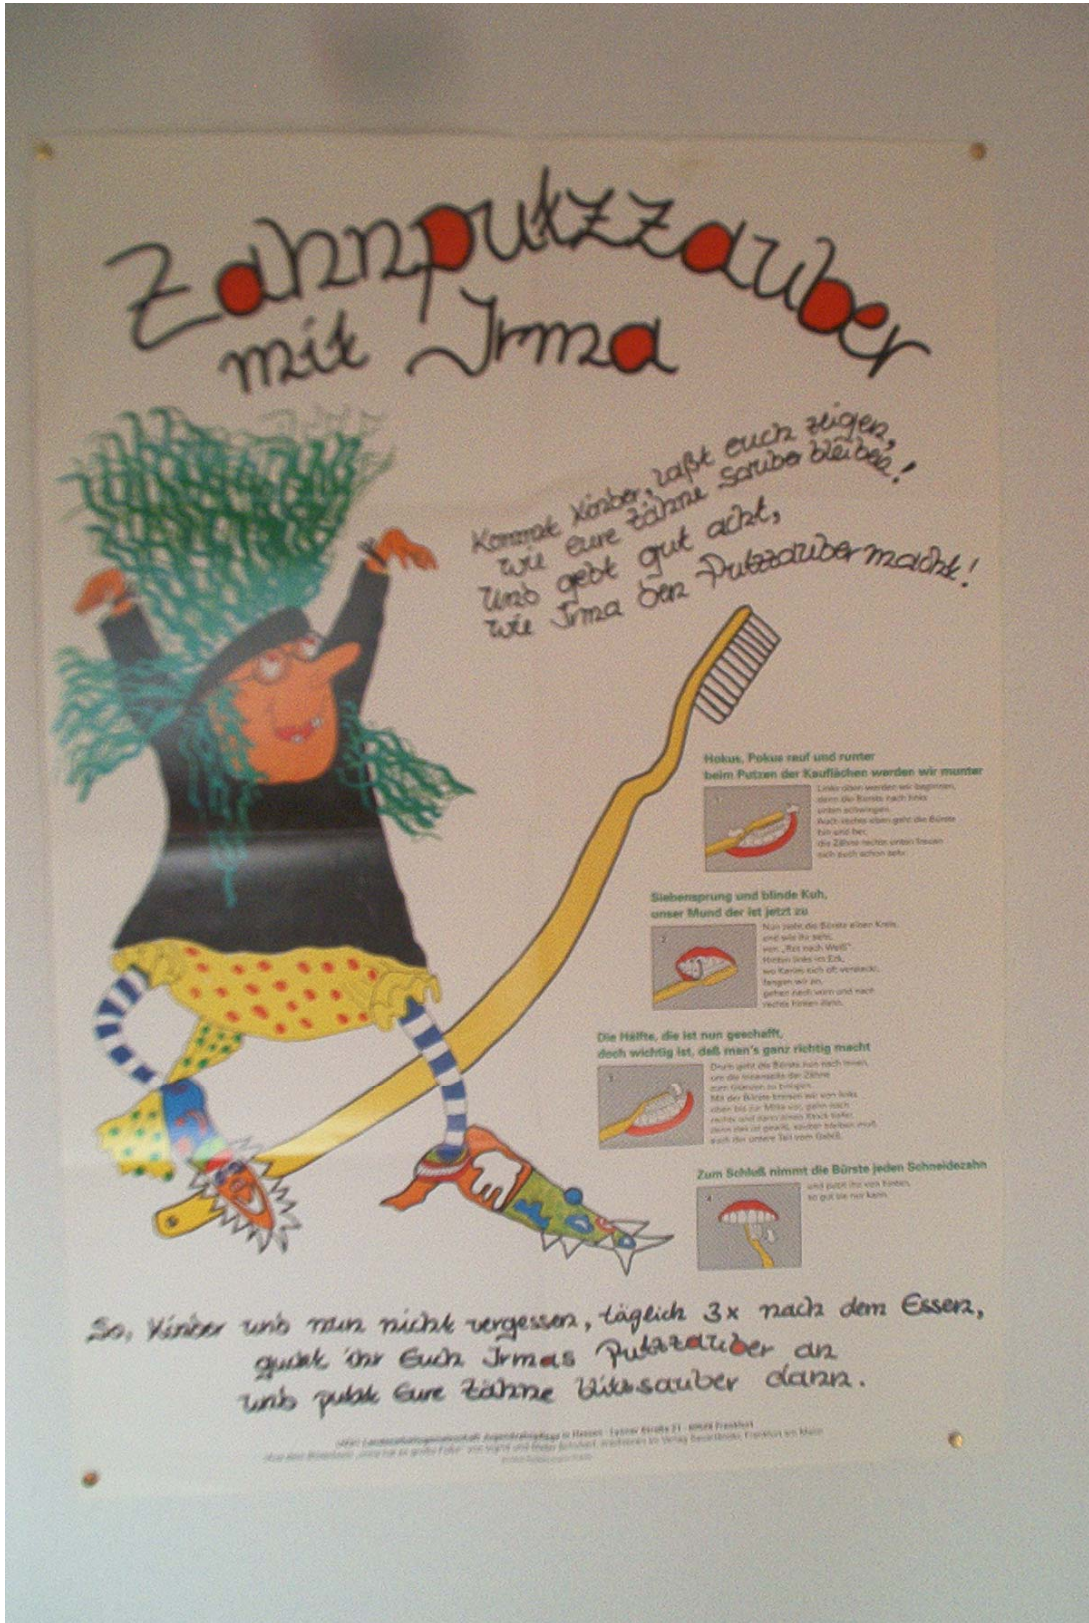 Zahnputzzauber
mit Irma
Kommt Kinder, laßt euch zeigen,
wie eure Zähne sauber bleiben!
Und gebt gut acht,
wie Irma den Putzzauber macht!
Hokus, Pokus rauf und runter
beim Putzen der Kauflächen werden wir munter
Links oben werden wir beginnen,
denn die Bürste nach links
unten schwingen.
Auch rechts oben geht die Bürste
hin und her,
die Zähne rechts unten freuen
sich auch schon sehr.
Siebensprung und blinde Kuh,
unser Mund der ist jetzt zu
Nun zieht die Bürste einen Kreis,
und wie ihr seht,
von „Rot nach Weiß"
Hinten links im Eck,
wo Karies sich oft versteckt,
fangen wir an,
gehen nach vorn und nach
rechts hinten dann.
Die Hälfte, die ist nun geschafft,
doch wichtig ist, daß man's ganz richtig macht
Drum geht die Bürste nun nach innen,
um die Innenseite der Zähne
zum Glänzen zu bringen.
Mit der Bürste kreisen wir von links
oben bis zur Mitte vor, gehn nach
rechts und dann eines Stock tiefer,
denn das ist gewiß, sauber bleiben muß
auch der untere Teil vom Gebiß.
Zum Schluß nimmt die Bürste jeden Schneidezahn
und putzt ihn von hinten,
so gut sie nur kann.
So, Kinder und nun nicht vergessen, täglich 3x nach dem Essen,
guckt ihr Euch Irmas Putzzauber an
und putzt Eure Zähne blitzsauber dann.
Landesarbeitsgemeinschaft Jugendzahnpflege in Hessen
Frankfurt